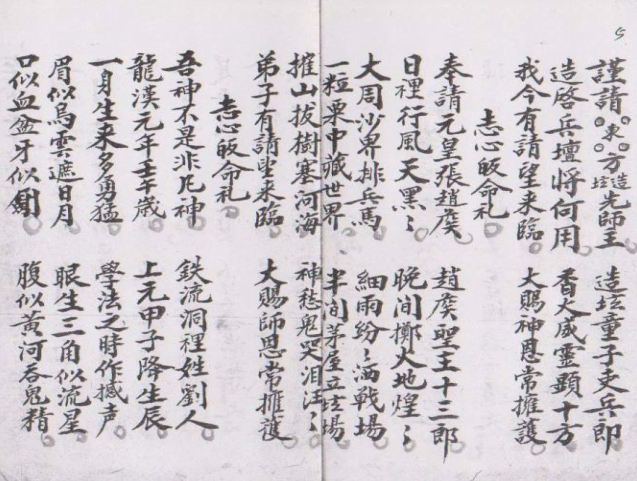 5
謹請東方造坛先師王 造坛童子吏兵郎
造啓兵壇將何用 香火威灵顕十方
我今有請望来臨 大賜神恩常擁護
志心皈命礼
奉請元皇張趙侯 趙侯聖王十三郎
日裡行風天黑〻 晚间擲火地煌〻
大周沙界排兵馬 細雨纷〻洒戰場
一粒粟中藏世界 半间茅屋立坛場
摧山拔樹塞河海 神愁鬼哭泪汪〻
弟子有請望来臨 大賜師恩常擁護
志心皈命礼
吾神不是非凡神 鉄流洞裡姓劉人
龍漢元年壬午歳 上元甲子降生辰
一身生来多勇猛 學法之時作撼声
眉似烏雲遮日月 眼生三角似流星
口似血盆牙似劍 腹似黄河吞鬼精